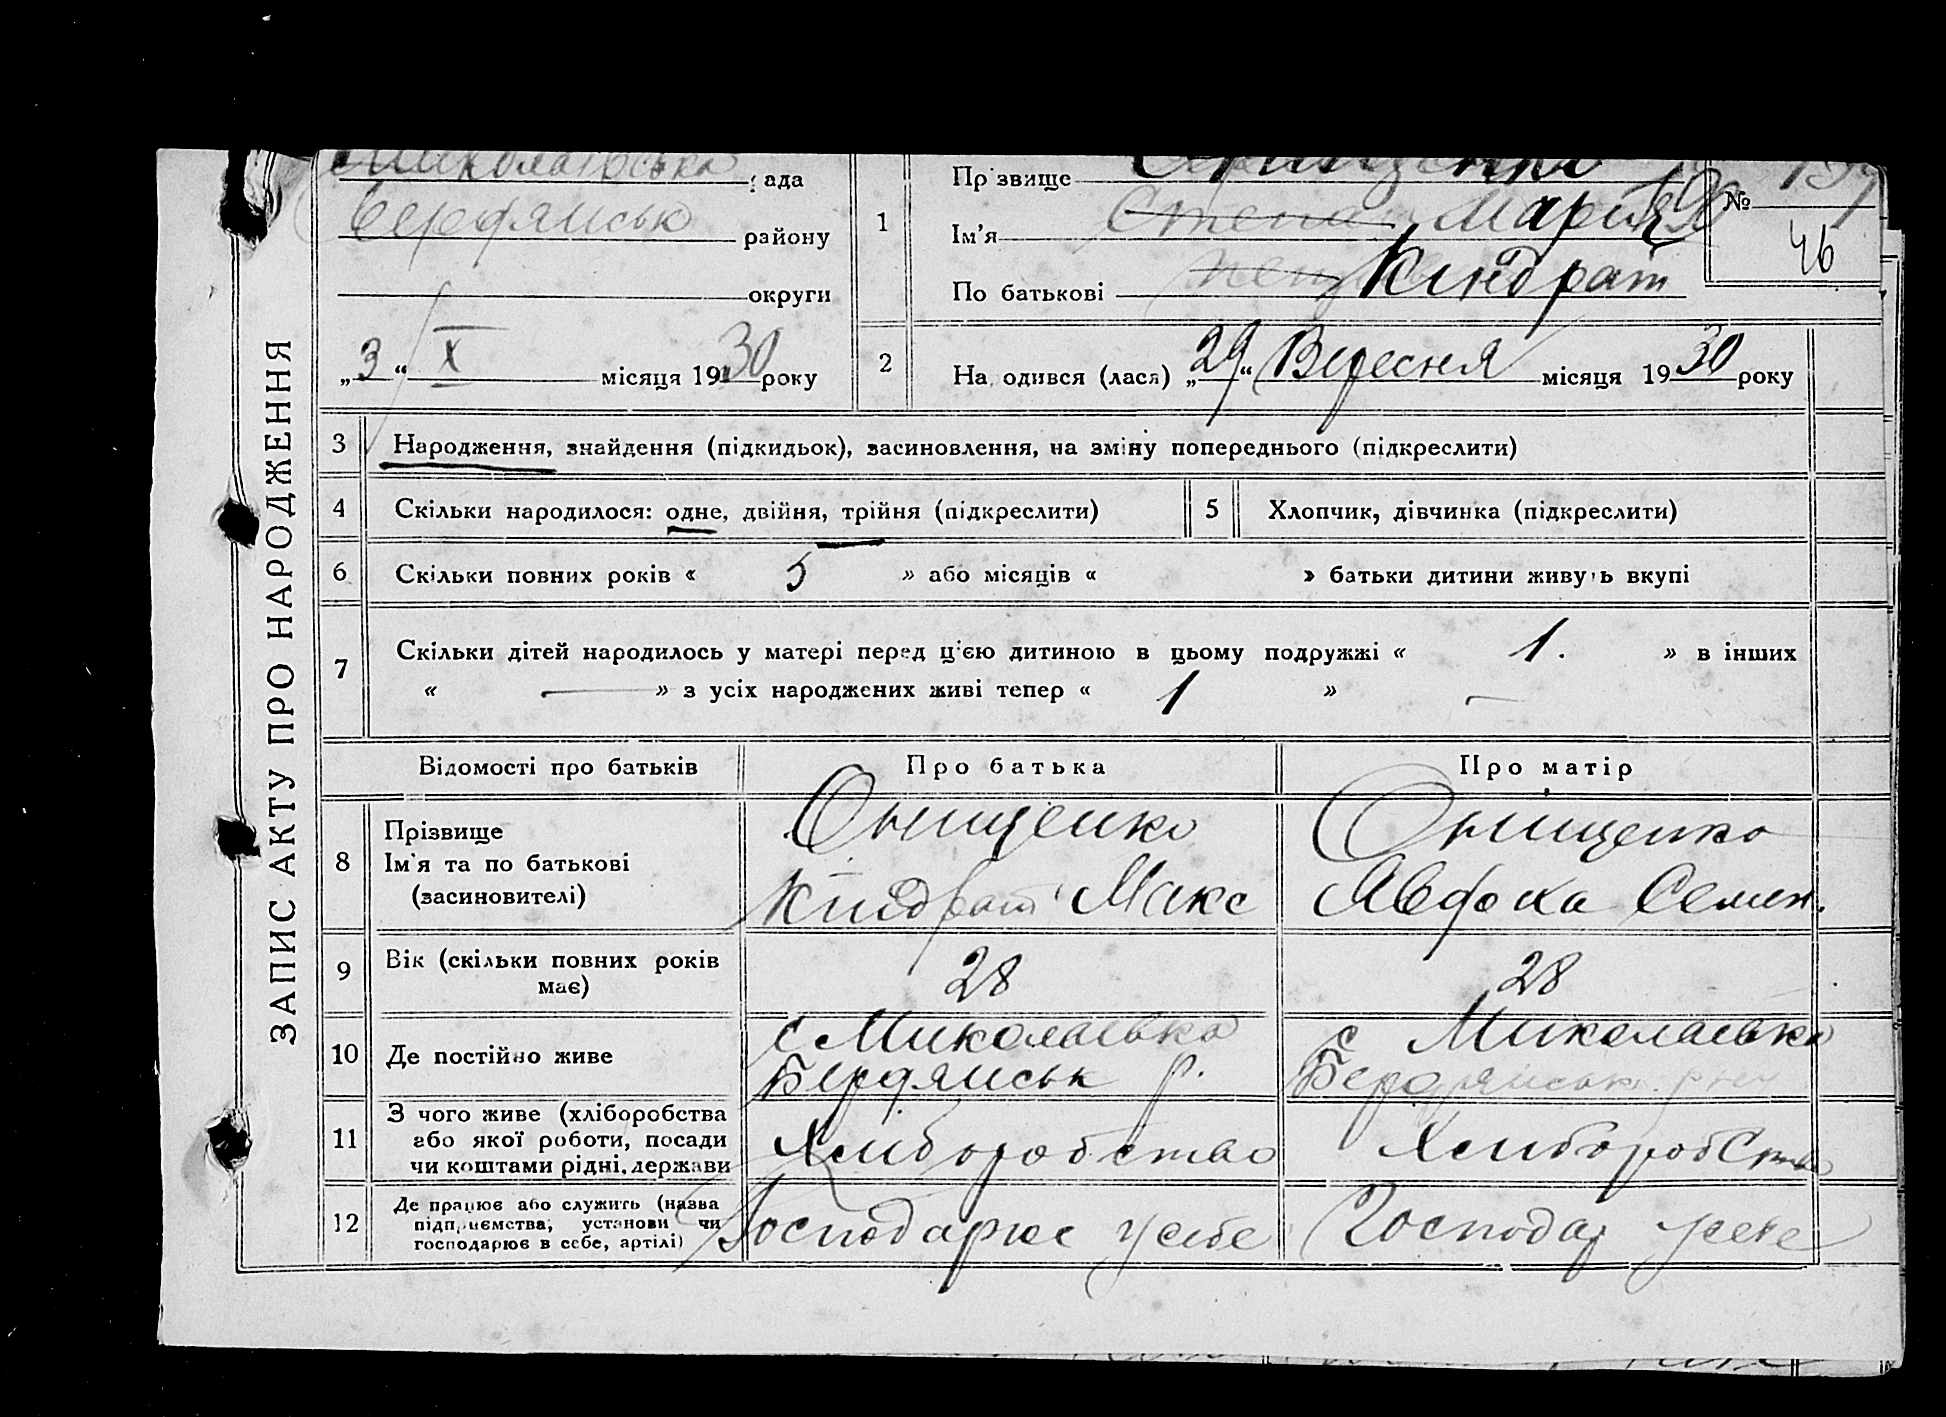 ЗАПИС АКТУ ПРО НАРОДЖЕННЯ
Миколаївська рада
Бердянськ району
округи
„3“ X місяця 1930 року
1
Прізвище Онищенко
Ім’я Степан Марія
По батькові Кіндрат
№
46
2
Народився (лася) „29“ Вересня місяця 1930 року
3 Народження, знайдення (підкидьок), засиновлення, на зміну попереднього (підкреслити)
4 Скільки народилося: одне, двійня, трійня (підкреслити) 5 Хлопчик, дівчинка (підкреслити)
6 Скільки повних років « 5 » або місяців « » батьки дитини живуть вкупі
7 Скільки дітей народилось у матері перед цією дитиною в цьому подружжі « 1. » в інших
« — » з усіх народжених живі тепер « 1 » —
Відомості про батьків Про батька Про матір
8 Прізвище
Ім’я та по батькові
(засиновителі)
Онищенко
Кіндрат Макс
Онищенко
Явдока Семен.
9 Вік (скільки повних років
має)
28
28
10 Де постійно живе
с Миколаевка
Бердянськ р.
с Миколаевка
Бердянськ.
11 З чого живе (хліборобства
або якої роботи, посади
чи коштами рідні, держави
Хліборобство
Хліборобство
12 Де працює або служить (назва
підприємства, установи чи
господарює в себе, артілі)
Господарює у себе
Господар у себе